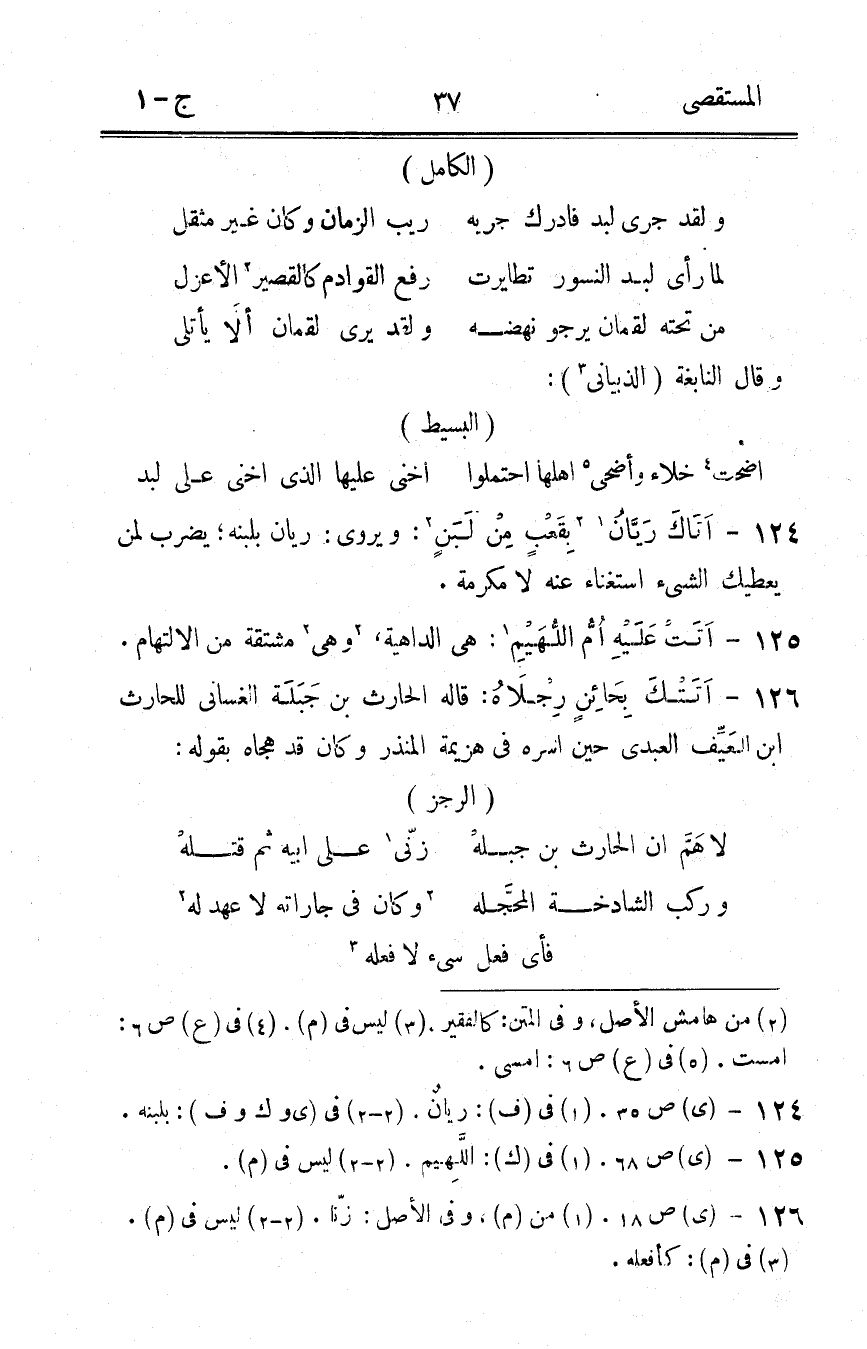 المستقصى ٣٧ ج - ١
( الكامل )
و لقد جرى لبد فادرك جريه ريب الزمان وكان غير مثقل
لما رأى لبد النسور تطايرت رفع القوادم كالقصير٢ الأعزل
من تحته لقمان يرجو نهضه و لقد يرى لقمان ألَا يأتلى
و قال النابغة ( الذبيانى٣ ) :
( البسيط )
اضحت٤ خلاء وأضحى٥ اهلها احتملوا اخنى عليها الذى اخنى على لبد
١٢٤ - اَتَاكَ رَيَّانُ١ ٢بِقَعْبٍ مِنْ لَبَنٍ٢ : و يروى : ريان بلبنه ؛ يضرب لمن
يعطيك الشىء استغناء عنه لا مكرمة .
١٢٥ - اَتَتْ عَلَيْهِ اُمُّ اللُّهَيْمِ١ : هى الداهية، ٢وهى٢ مشتقة من الالتهام .
١٢٦ - اَتَتْكَ بِحَائِنٍ رِجْلَاهُ : قاله الحارث بن جَبَلَة الغسانى للحارث
ابن العَيِّف العبدى حين اسره فى هزيمة المنذر وكان قد هجاه بقوله :
( الرجز )
لا هَمَّ ان الحارث بن جبلهْ زنّى١ على ابيه ثم قتلهْ
و ركب الشادخة المحجَّله ٢وكان فى جاراته لا عهد له٢
فأى فعل سىء لا فعله٣
(٢) من هامش الأصل، و فى المتن: كالفقير .(٣) ليس فى (م) . (٤) فى (ع) ص ٦ :
امست . (٥) فى (ع) ص ٦ : امسى .
١٢٤ - (ى) ص ٣٥ . (١) فى (ف) : ريانٌ . (٢-٢) فى (ى و ك و ف ) : بلبنه .
١٢٥ - (ى) ص ٦٨ . (١) فى (ك) : اللَّهِيم . (٢-٢) ليس فى (م) .
١٢٦ - (ى) ص ١٨ . (١) من (م) ، و فى الأصل : زنّا . (٢-٢) ليس فى (م) .
(٣) فى (م) : كأفعله .